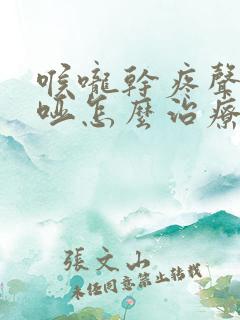 喉嚨幹疼聲
啞怎麼治療
張文山
未经同意禁止转载